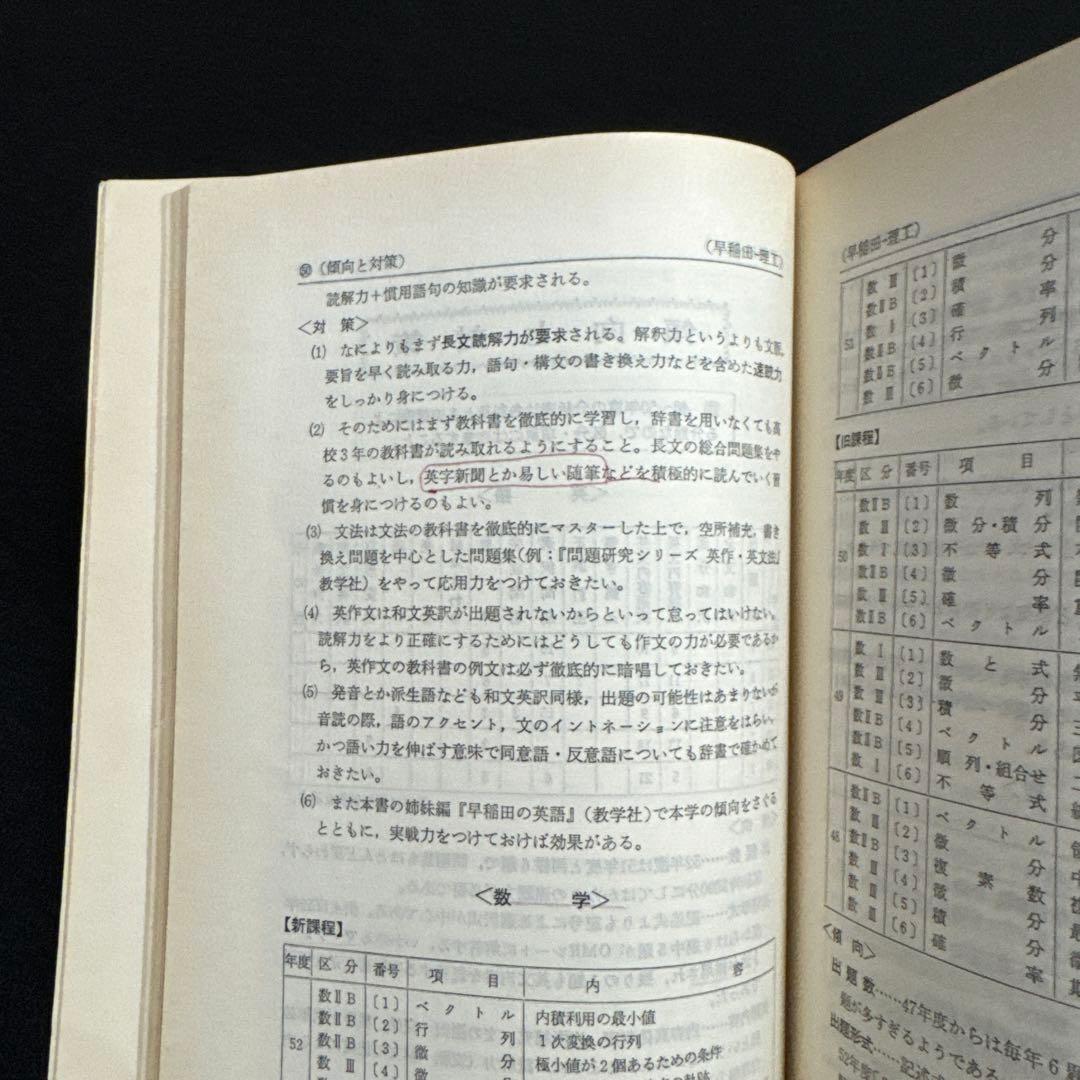 ㊿ (傾向と対策)
(早稲田-理工)
読解力＋慣用語句の知識が要求される。
<対 策>
(1) なによりもまず長文読解力が要求される。解釈力というよりも文脈,
要旨を早く読み取る力, 語句・構文の書き換え力などを含めた速読力
をしっかり身につける。
(2) そのためにはまず教科書を徹底的に学習し, 辞書を用いなくても高
校3年の教科書が読み取れるようにすること。長文の総合問題集をや
るのもよいし, 英字新聞とか易しい随筆などを積極的に読んでいく習
慣を身につけるのもよい。
(3) 文法は文法の教科書を徹底的にマスターした上で, 空所補充, 書き
換え問題を中心とした問題集(例：『問題研究シリーズ 英作・英文法』
教学社) をやって応用力をつけておきたい。
(4) 英作文は和文英訳が出題されないからといって怠ってはいけない。
読解力をより正確にするためにはどうしても作文の力が必要であるか
ら, 英作文の教科書の例文は必ず徹底的に暗唱しておきたい。
(5) 発音とか派生語なども和文英訳同様, 出題の可能性はあまりないが
音読の際, 語のアクセント, 文のイントネーションに注意をはらい,
かつ語い力を伸ばす意味で同意語・反意語についても辞書で確かめて
おきたい。
(6) また本書の姉妹編『早稲田の英語』(教学社) で本学の傾向をさぐる
とともに, 実戦力をつけておけば効果がある。
<数 学>
【新課程】
年度 区 分 番号 項 目 内 容
数ⅡB 〔1〕 ベクトル 内積利用の最小値
数ⅡB 〔2〕 行 列 1次変換の行列
52 数ⅡB 〔3〕 微 分 極小値が2個あるための条件
数Ⅲ 〔4〕 微 分
(早稲田-理工)
数Ⅲ 〔1〕 微 分
数ⅡB 〔2〕 積 分
51 数Ⅰ 〔3〕 確 率
数ⅡB 〔4〕 行 列
数ⅡB 〔5〕 ベクトル
数Ⅲ 〔6〕 微 分
【旧課程】
年度 区 分 番号 項 目
数ⅡB 〔1〕 数 列
数Ⅲ 〔2〕 微分・積分
50 数Ⅰ 〔3〕 不 等 式
数ⅡB 〔4〕 微 分
数Ⅲ 〔5〕 確 率
数ⅡB 〔6〕 ベクトル
数Ⅰ 〔1〕 数 と 式
数Ⅲ 〔2〕 微 分
49 数Ⅲ 〔3〕 積 分
数ⅡB 〔4〕 ベクトル
数ⅡB 〔5〕 順列・組合せ
数Ⅰ 〔6〕 不 等 式
数ⅡB 〔1〕 ベクトル
数Ⅲ 〔2〕 微 分
数ⅡB 〔3〕 複 素 数
数Ⅲ 〔4〕 微 分
数Ⅲ 〔5〕 積 分
数Ⅲ 〔6〕 確 率
<傾 向>
出題数……47年度からは毎年6題
題が多すぎるようである
出題形式……記述式
52年度